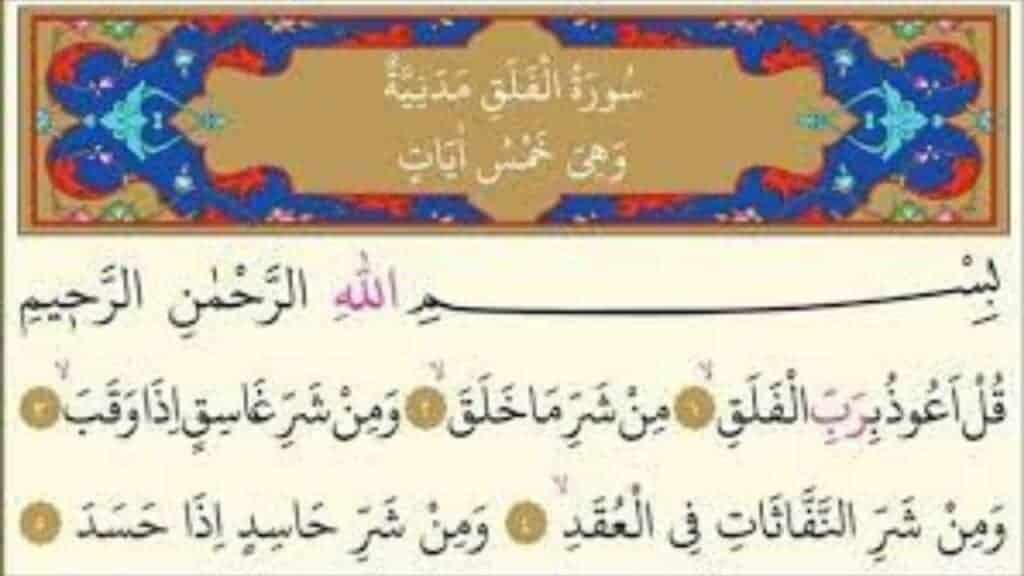 سُورَةُ الْفَلَقِ مَدَنِيَّةٌ
وَهِىَ خَمْسُ اٰيَاتٍ
بِسْمِ اللّٰهِ الرَّحْمٰنِ الرَّحٖيمِ
قُلْ اَعُوذُ بِرَبِّ الْفَلَقِۙ ﴿١﴾ مِنْ شَرِّ مَا خَلَقَۙ ﴿٢﴾ وَمِنْ شَرِّ غَاسِقٍ اِذَا وَقَبَۙ ﴿٣﴾
وَمِنْ شَرِّ النَّفَّاثَاتِ فِى الْعُقَدِۙ ﴿٤﴾ وَمِنْ شَرِّ حَاسِدٍ اِذَا حَسَدَ ﴿٥﴾